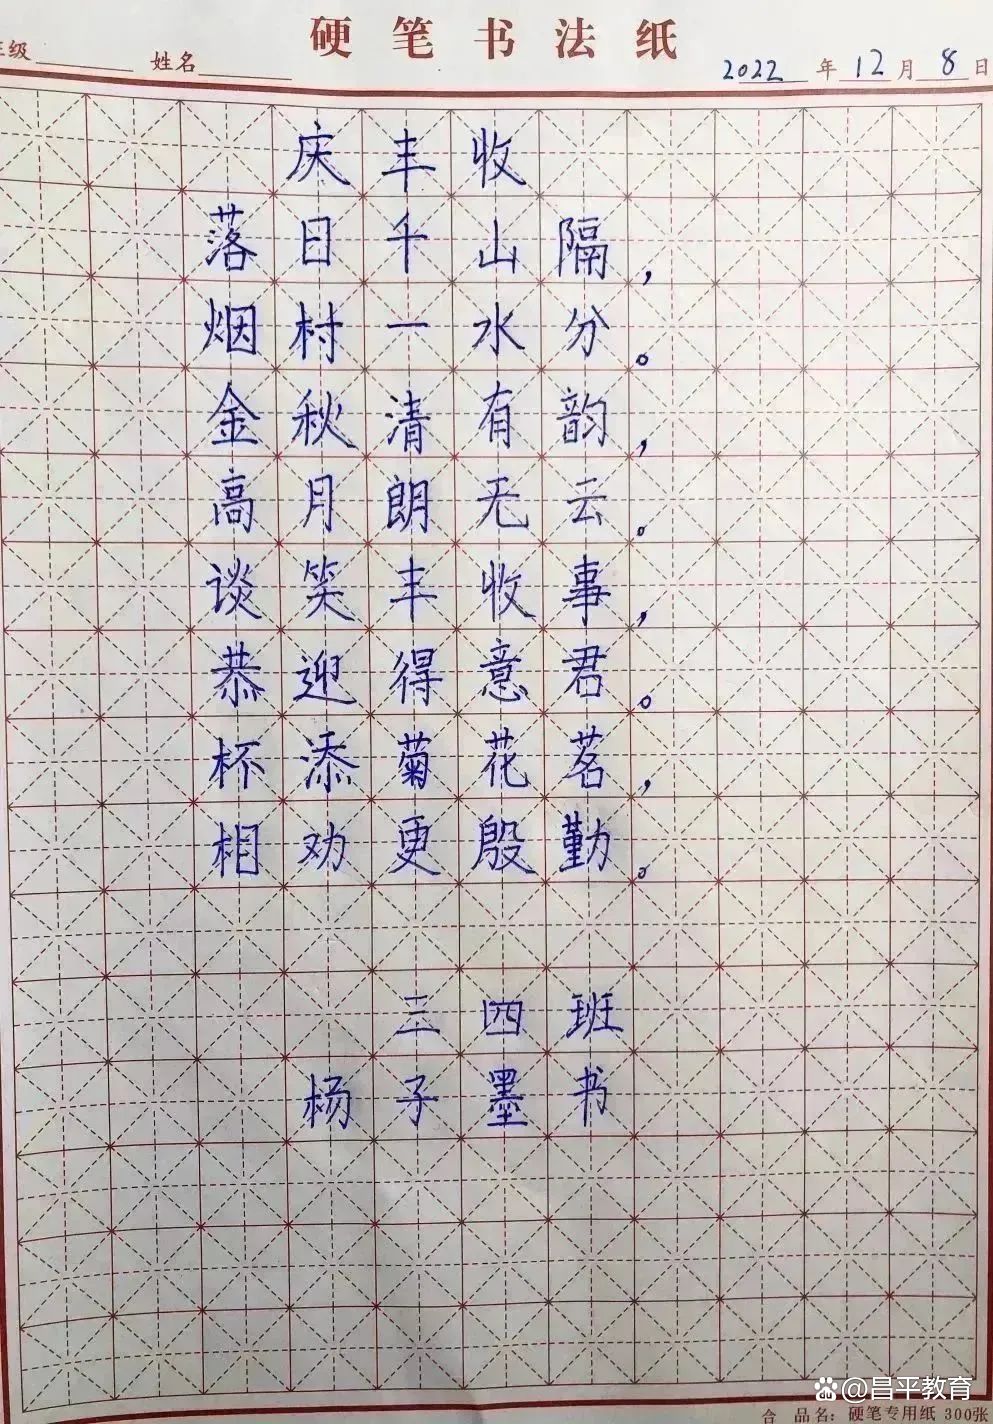 硬笔书法纸
级 姓名 2022年12月8日
庆丰收
落日千山隔，
烟村一水分。
金秋清有韵，
高月朗无云。
谈笑丰收事，
恭迎得意君。
杯添菊花茗，
相劝更殷勤。
三四班
杨子墨书
@昌平教育
合 品名：硬笔专用纸 300张